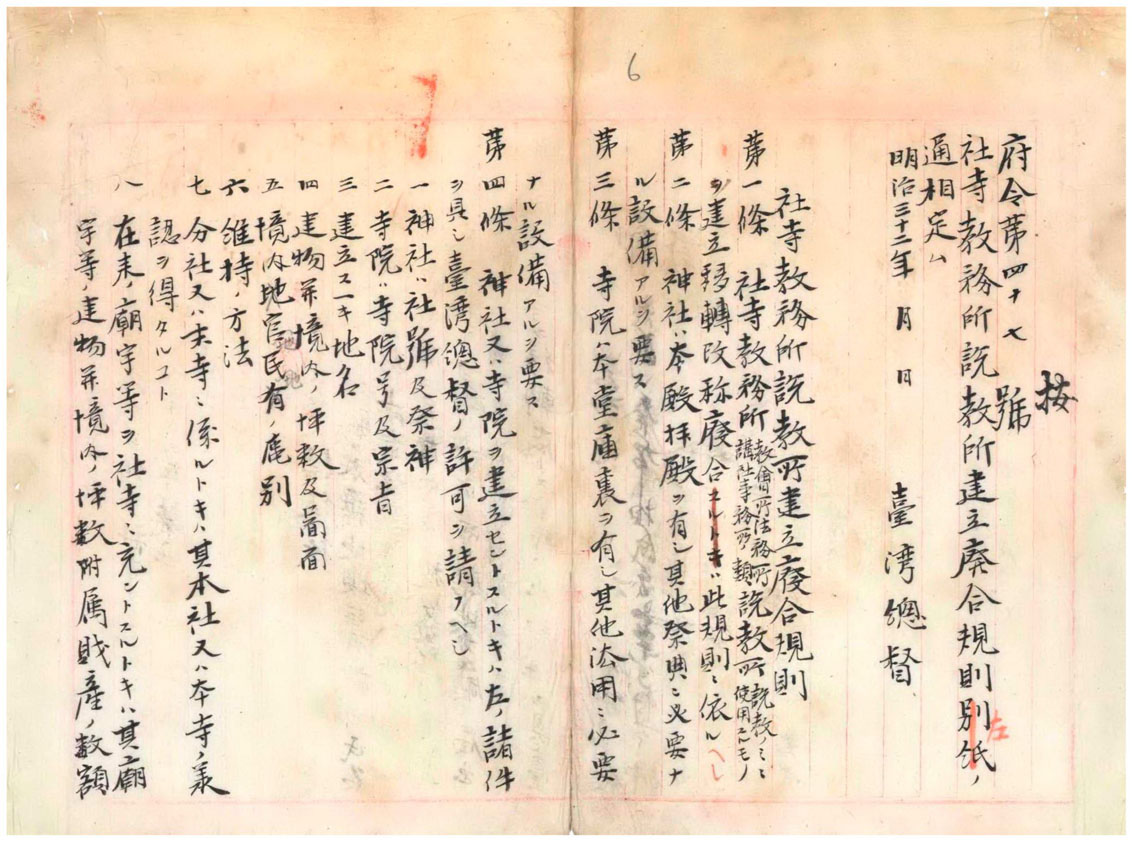 6
按
府令第四十七號
社寺教務所説教所建立廃合規則別紙ノ
左
通相定ム
明治三十二年 月 日
臺湾總督
社寺教務所説教所建立廢合規則
第一條 社寺教務所教會所法務所講社寺務所ノ類説教所説教ノミニ使用スルモノ
ヲ建立移轉改称廢合スルトキハ此規則ニ依ルヘシ
第二條 神社ハ本殿拝殿ヲ有シ其他祭典ニ必要ナ
ル設備アルヲ要ス
第三條 寺院ハ本堂庫裏ヲ有シ其他法用ニ必要
ナル設備アルヲ要ス
第四條 神社又ハ寺院ヲ建立セントスルトキハ左ノ諸件
ヲ具シ臺湾總督ノ許可ヲ請フヘシ
一 神社ハ社號及祭神
二 寺院ハ寺院号及宗旨
三 建立スヘキ地名
四 建物并境内ノ坪数及圖面
五 境内地官民有ノ區別
六 維持ノ方法
七 分社又ハ末寺ニ係ルトキハ其本社又ハ本寺ノ承
認ヲ得タルコト
八 在来ノ廟宇等ヲ社寺ニ充ントスルトキハ其廟
宇等ノ建物并境内ノ坪数附属財産ノ数額